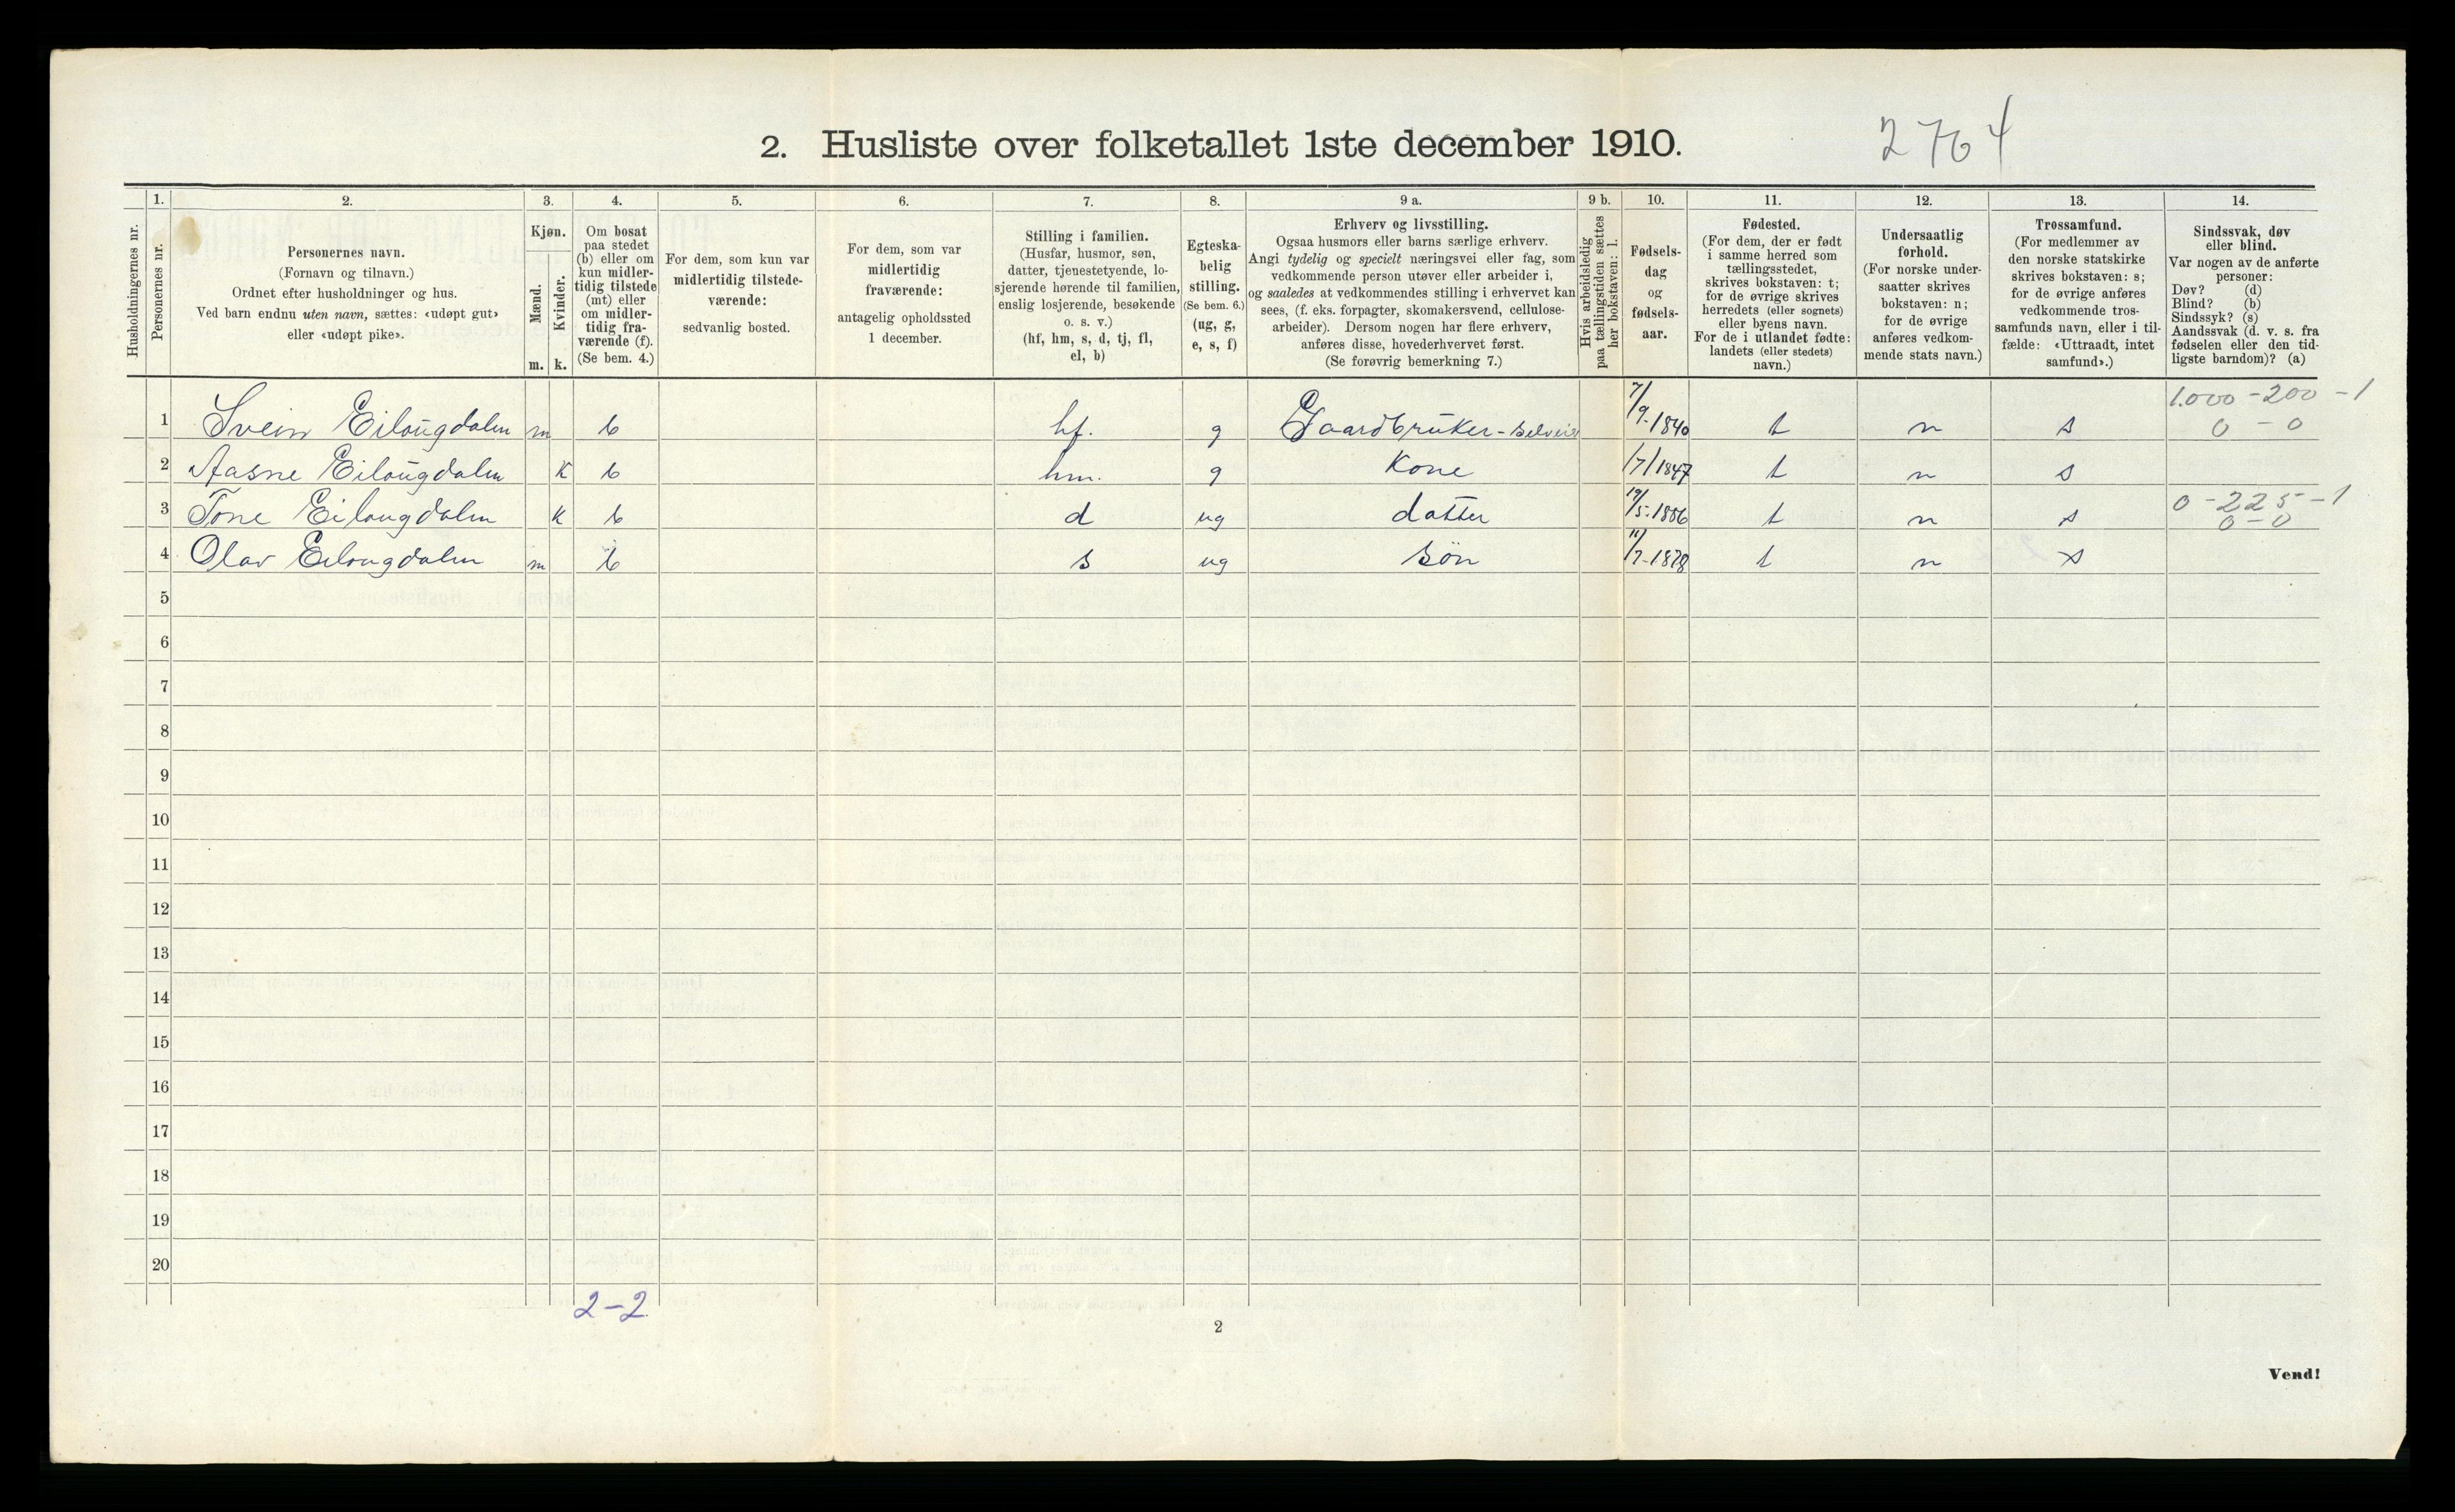 2. Husliste over folketallet 1ste december 1910.
2764
Husholdningernes nr.
1.
Personernes nr.
2.
Personernes navn.
(Fornavn og tilnavn.)
Ordnet efter husholdninger og hus.
Ved barn endnu uten navn, sættes: «udøpt gut»
eller «udøpt pike».
3.
Kjøn.
Mænd.
Kvinder.
m. k.
4.
Om bosat
paa stedet
(b) eller om
kun midler-
tidig tilstede
(mt) eller
om midler-
tidig fra-
værende (f).
(Se bem. 4.)
5.
For dem, som kun var
midlertidig tilstede-
værende:
sedvanlig bosted.
6.
For dem, som var
midlertidig
fraværende:
antagelig opholdssted
1 december.
7.
Stilling i familien.
(Husfar, husmor, søn,
datter, tjenestetyende, lo-
sjerende hørende til familien,
enslig losjerende, besøkende
o. s. v.)
(hf, hm, s, d, tj, fl,
el, b)
8.
Egteska-
belig
stilling.
(Se bem. 6.)
(ug, g,
e, s, f)
9 a.
Erhverv og livsstilling.
Ogsaa husmors eller barns særlige erhverv.
Angi tydelig og specielt næringsvei eller fag, som
vedkommende person utøver eller arbeider i,
og saaledes at vedkommendes stilling i erhvervet kan
sees, (f. eks. forpagter, skomakersvend, cellulose-
arbeider). Dersom nogen har flere erhverv,
anføres disse, hovederhvervet først.
(Se forøvrig bemerkning 7.)
9 b.
Hvis arbeidsledig
paa tællingstiden sættes
her bokstaven: l.
10.
Fødsels-
dag
og
fødsels-
aar.
11.
Fødested.
(For dem, der er født
i samme herred som
tællingsstedet,
skrives bokstaven: t;
for de øvrige skrives
herredets (eller sognets)
eller byens navn.
For de i utlandet fødte:
landets (eller stedets)
navn.)
12.
Undersaatlig
forhold.
(For norske under-
saatter skrives
bokstaven: n;
for de øvrige
anføres vedkom-
mende stats navn.)
13.
Trossamfund.
(For medlemmer av
den norske statskirke
skrives bokstaven: s;
for de øvrige anføres
vedkommende tros-
samfunds navn, eller i til-
fælde: «Uttraadt, intet
samfund».)
14.
Sindssvak, døv
eller blind.
Var nogen av de anførte
personer:
Døv? (d)
Blind? (b)
Sindssyk? (s)
Aandssvak (d. v. s. fra
fødselen eller den tid-
ligste barndom)? (a)
1.000 - 200 - 1
1 Svein Eilougdalen m b hf. g Gaardbruker - selveier 7/9-1840 t n s 0 - 0
2 Aasne Eilougdalen K b hm. g Kone /7/1847 t n s
0 - 225 - 1
3 Tone Eilougdalen K b d ug datter 19/5-1886 t n s 0 - 0
4 Olav Eilougdalen m b s ug Søn 11/7-1878 t n s
5
6
7
8
9
10
11
12
13
14
15
16
17
18
19
20
2-2
2
Vend!